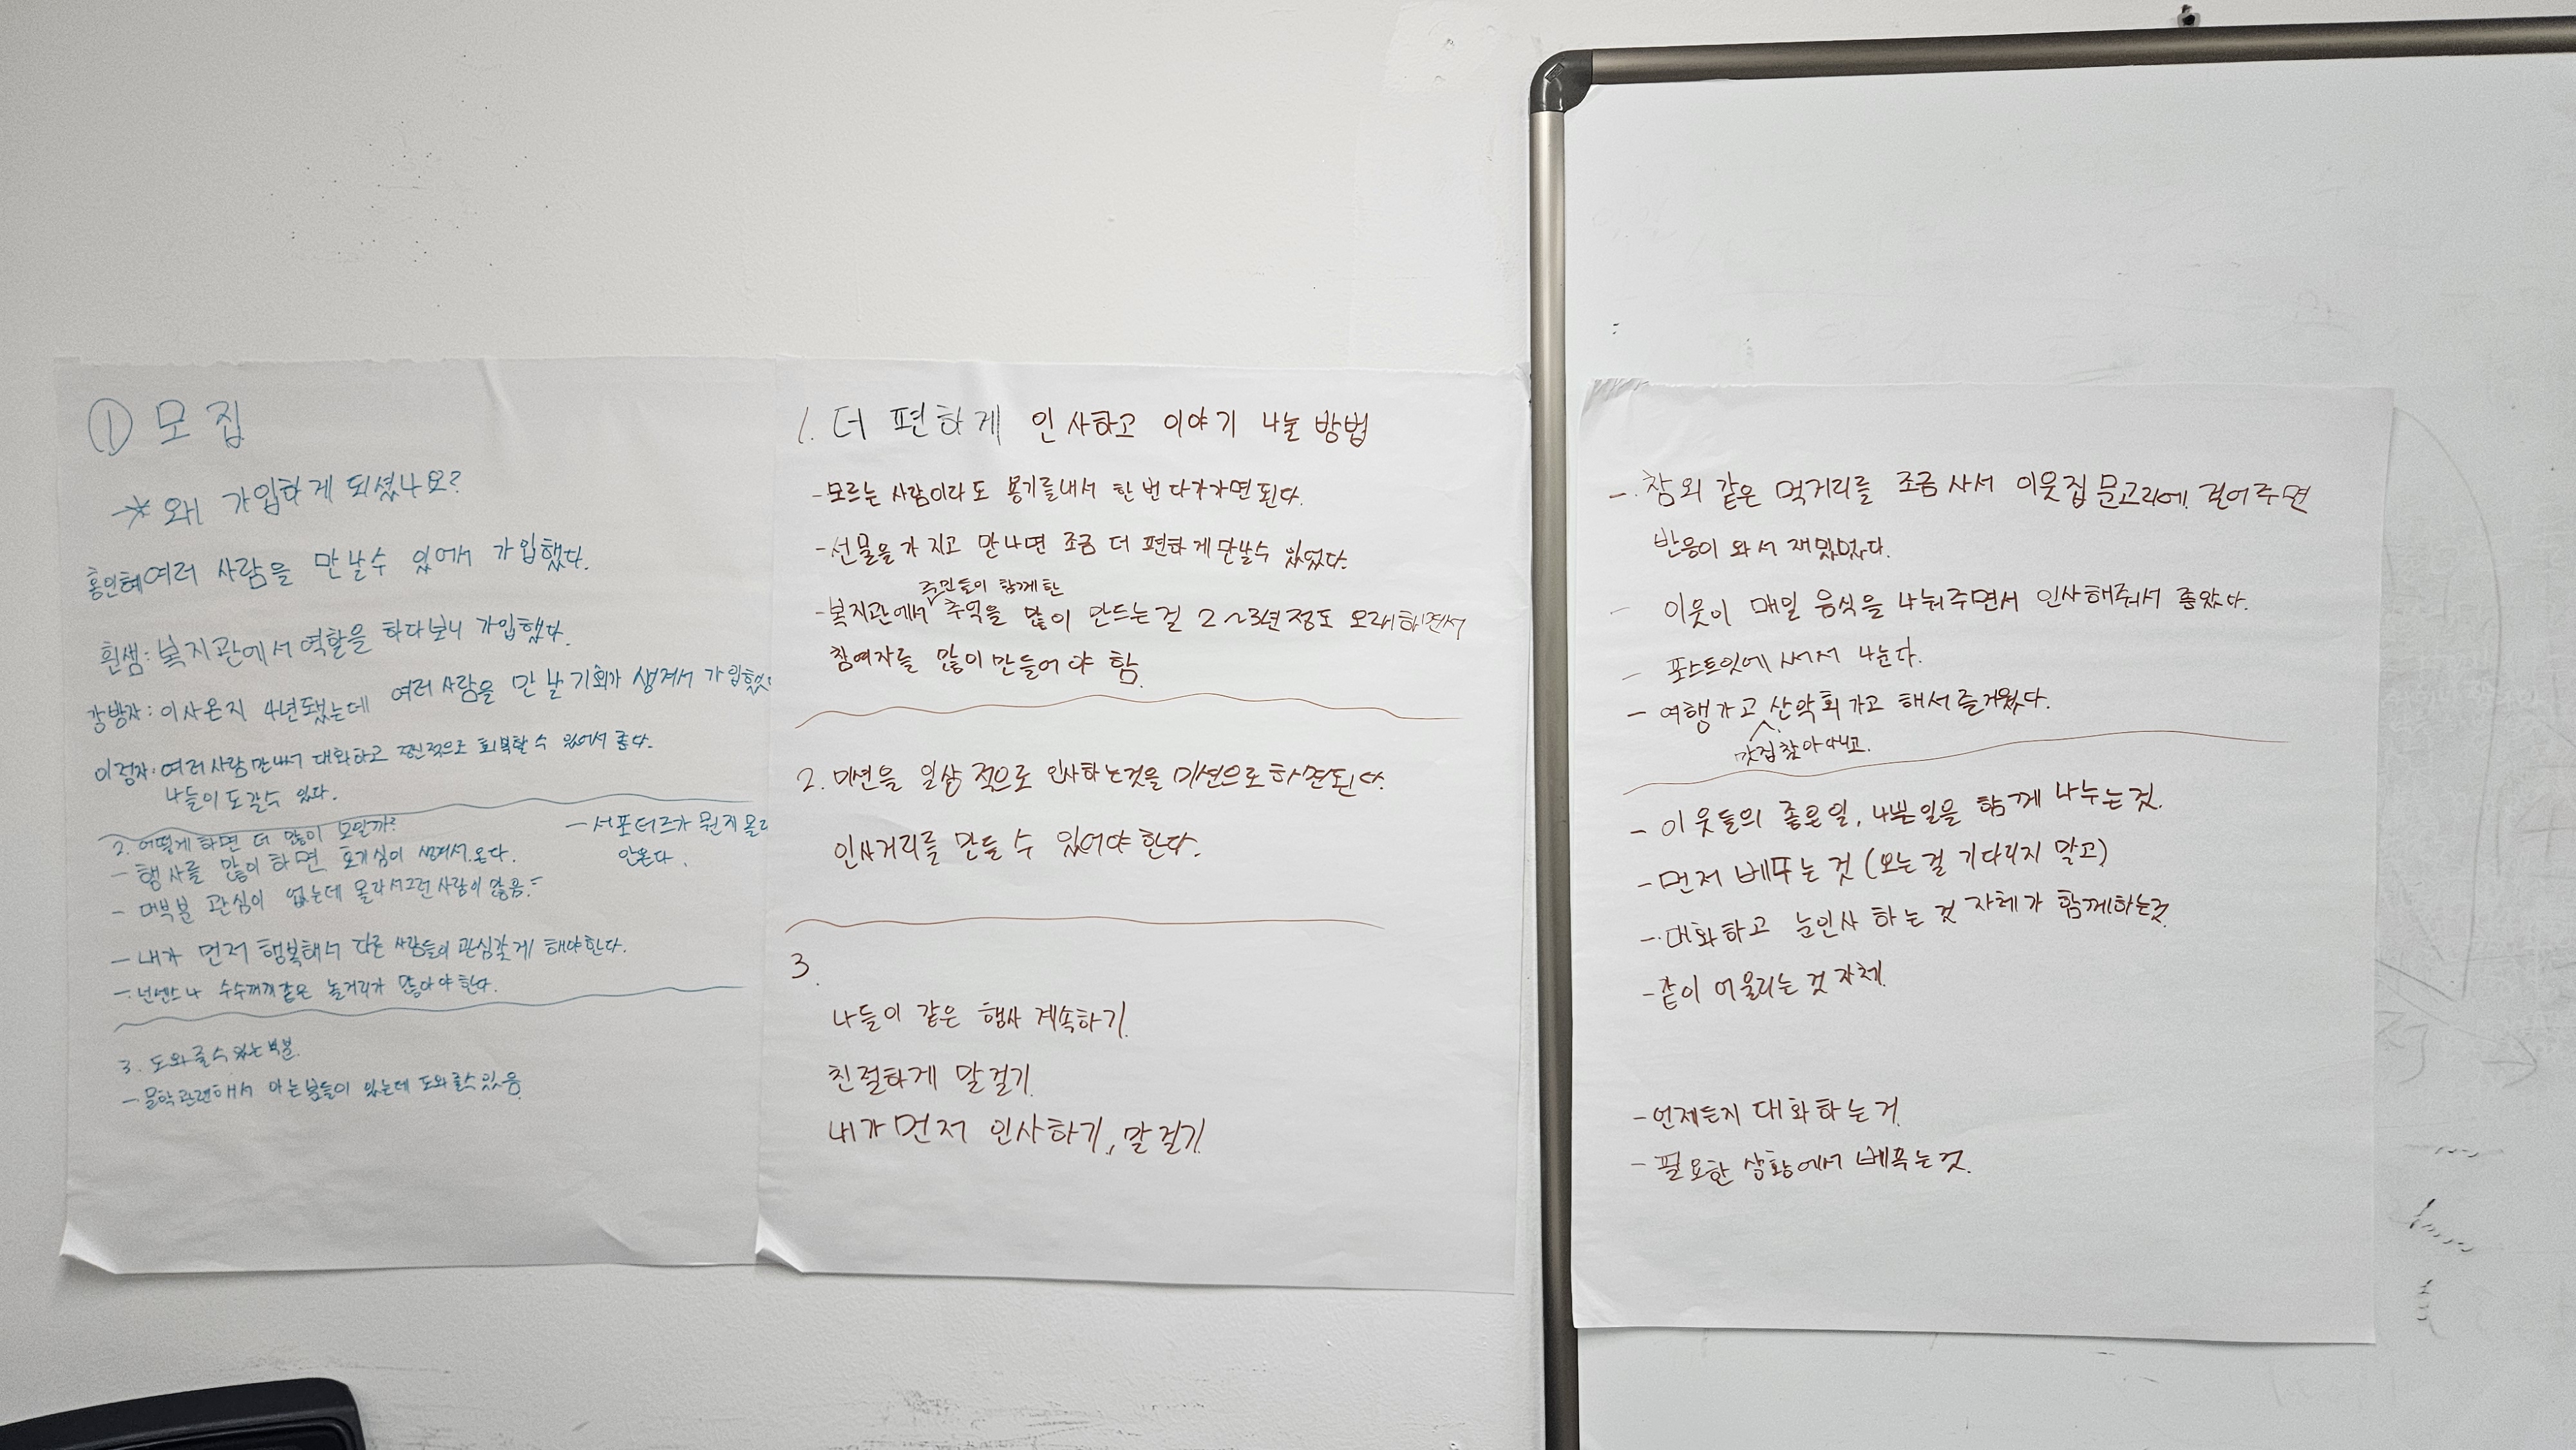 ① 모집
→* 왜 가입하게 되셨나요?
홍인혜 여러 사람을 만날수 있어서 가입했다.
흰샘: 복지관에서 역할을 하다보니 가입했다.
강방자: 이사온지 4년됐는데 여러사람을 만날 기회가 생겨서 가입했
이정자: 여러사람 만나서 대화하고 정신적으로 회복할 수 있어서 좋다.
나들이도 갈수 있다.
2. 어떻게 하면 더 많이 모일까?
- 행사를 많이 하면 호기심이 생겨서 온다.
- 대부분 관심이 없는데 몰라서 그런 사람이 많음.
- 서포터즈가 뭔지 몰라
안온다.
- 내가 먼저 행복해서 다른 사람들이 관심갖게 해야한다.
- 넌센스나 수수께끼같은 놀거리가 많아야 한다.
3. 도와줄수 있는 부분.
- 문학관련해서 아는분들이 있는데 도와줄수 있음
1. 더 편하게 인사하고 이야기 나눌 방법
- 모르는 사람이라도 용기를내서 한번 다가가면 된다.
- 선물을 가지고 만나면 조금 더 편하게 만날수 있었다.
주민들이 함께한
- 복지관에서 추억을 많이 만드는걸 2~3년정도 오래하면서
참여자를 많이 만들어야 함.
2. 미션을 일상적으로 인사하는것을 미션으로 하면된다.
인사거리를 만들 수 있어야 한다.
3.
나들이 같은 행사 계속하기.
친절하게 말걸기.
내가 먼저 인사하기, 말걸기.
- 참외 같은 먹거리를 조금 사서 이웃집 문고리에 걸어주면
반응이 와서 재밌었다.
- 이웃이 매일 음식을 나눠주면서 인사해줘서 좋았다.
- 포스트잇에 써서 나눈다.
- 여행가고 산악회 가고 해서 즐거웠다.
맛집찾아다니고.
- 이웃들의 좋은일, 나쁜일을 함께 나누는것.
- 먼저 베푸는 것 (오는걸 기다리지 말고)
- 대화하고 눈인사 하는 것 자체가 함께하는것
- 같이 어울리는 것 자체.
- 언제든지 대화하는거
- 필요한 상황에서 베푸는것.